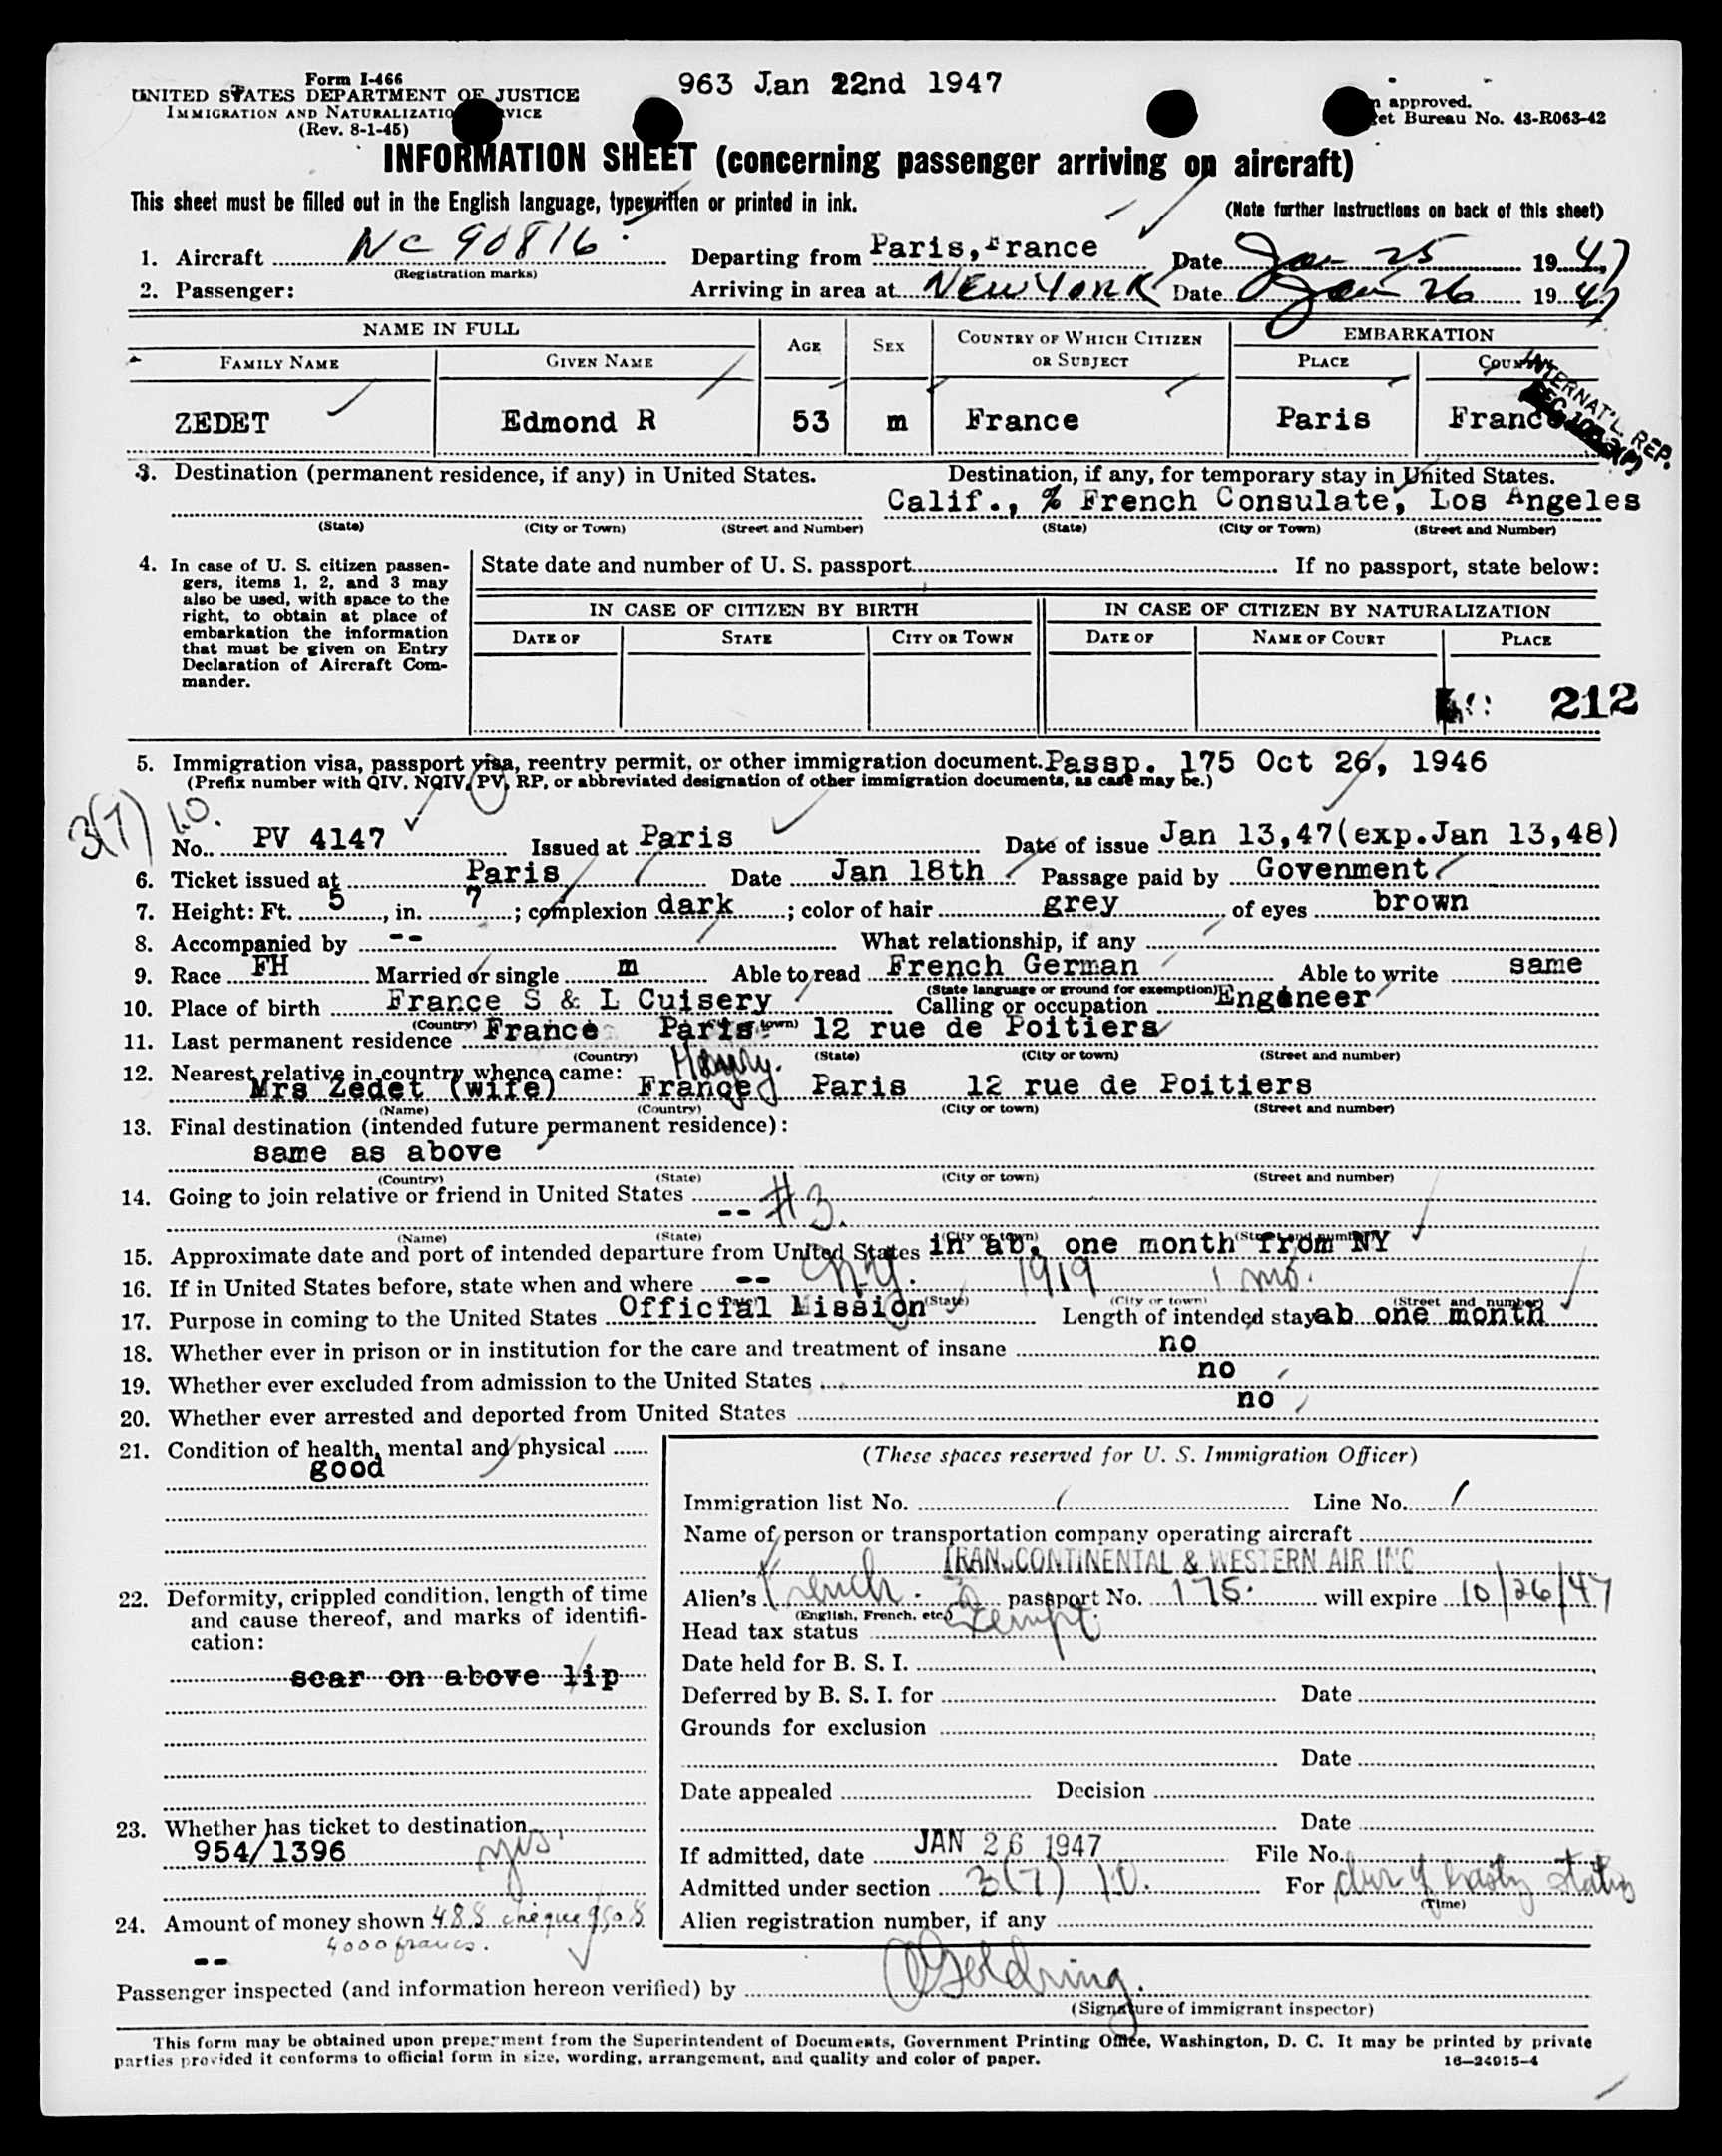 Form I-466
963 Jan 22nd 1947
UNITED STATES DEPARTMENT OF JUSTICE
approved.
IMMIGRATION AND NATURALIZATION SERVICE
Bureau No. 43-R063-42
(Rev. 8-1-45)
INFORMATION SHEET (concerning passenger arriving on aircraft)
This sheet must be filled out in the English language, typewritten or printed in ink.
(Note further instructions on back of this sheet)
1. Aircraft NC 90816 Departing from Paris, France Date Jan 25 1947
(Registration marks)
2. Passenger: Arriving in area at NEW YORK Date Jan 26 1947
NAME IN FULL
AGE SEX COUNTRY OF WHICH CITIZEN OR SUBJECT EMBARKATION
FAMILY NAME GIVEN NAME PLACE
INTERNAT'L. REP.
ZEDET Edmond R 53 m France Paris France
3. Destination (permanent residence, if any) in United States. Destination, if any, for temporary stay in United States.
Calif., % French Consulate, Los Angeles
(State) (City or Town) (Street and Number) (State) (City or Town) (Street and Number)
4. In case of U. S. citizen passengers, items 1, 2, and 3 may also be used, with space to the right, to obtain at place of embarkation the information that must be given on Entry Declaration of Aircraft Commander.
State date and number of U. S. passport If no passport, state below:
IN CASE OF CITIZEN BY BIRTH IN CASE OF CITIZEN BY NATURALIZATION
DATE OF STATE CITY OR TOWN DATE OF NAME OF COURT PLACE
212
5. Immigration visa, passport visa, reentry permit, or other immigration document. Passp. 175 Oct 26, 1946
(Prefix number with QIV, NQIV, PV, RP, or abbreviated designation of other immigration documents, as case may be.)
3(7) I.O.
No. PV 4147 Issued at Paris Date of issue Jan 13,47(exp.Jan 13,48)
6. Ticket issued at Paris Date Jan 18th Passage paid by Govenment
7. Height: Ft. 5, in. 7; complexion dark; color of hair grey of eyes brown
8. Accompanied by -- What relationship, if any
9. Race FH Married or single m Able to read French German Able to write same
(State language or ground for exemption)
10. Place of birth France S & L Cuisery Calling or occupation Engineer
(Country) town)
11. Last permanent residence France Paris 12 rue de Poitiers
(Country) (State) (City or town) (Street and number)
12. Nearest relative in country whence came:
Mrs Zedet (wife) France Paris 12 rue de Poitiers
(Name) (Country) (City or town) (Street and number)
13. Final destination (intended future permanent residence):
same as above
(Country) (State) (City or town) (Street and number)
14. Going to join relative or friend in United States
-- #3.
(Name) (State) (City or town) (Street and number)
15. Approximate date and port of intended departure from United States in ab. one month from NY
16. If in United States before, state when and where -- N.Y. 1919 1 mo.
(State) (City or town) (Street and number)
17. Purpose in coming to the United States Official Mission Length of intended stay ab one month
18. Whether ever in prison or in institution for the care and treatment of insane no
19. Whether ever excluded from admission to the United States no
20. Whether ever arrested and deported from United States no
21. Condition of health, mental and physical
good
22. Deformity, crippled condition, length of time and cause thereof, and marks of identification:
scar on above lip
23. Whether has ticket to destination
954/1396 yes.
24. Amount of money shown 48$ cheque 950$
4000 francs.
--
(These spaces reserved for U. S. Immigration Officer)
Immigration list No. 1 Line No. 1
Name of person or transportation company operating aircraft
TRANSCONTINENTAL & WESTERN AIR INC
Alien's French. passport No. 175. will expire 10/26/47
(English, French, etc.)
Head tax status Exempt.
Date held for B. S. I.
Deferred by B. S. I. for Date
Grounds for exclusion
Date
Date appealed Decision
Date
If admitted, date JAN 26 1947 File No.
Admitted under section 3(7) I.O. For dur of status
(Time)
Alien registration number, if any
Passenger inspected (and information hereon verified) by Goldring.
(Signature of immigrant inspector)
This form may be obtained upon prepayment from the Superintendent of Documents, Government Printing Office, Washington, D. C. It may be printed by private
parties provided it conforms to official form in size, wording, arrangement, and quality and color of paper.
16—24915-4